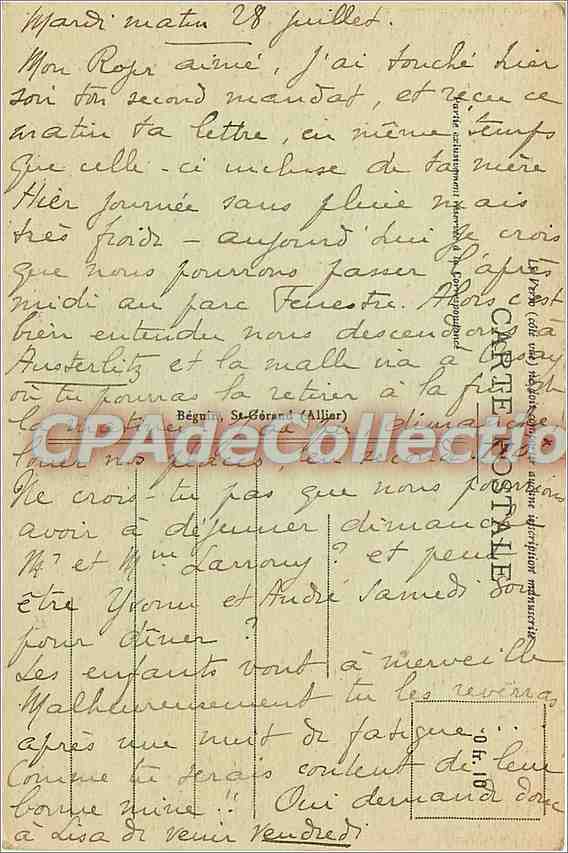 Mardi matin 28 juillet.
Mon Roger aimé, j'ai touché hier
soir ton second mandat, et reçu ce
matin ta lettre, en même temps
que celle-ci incluse de ta mère
Hier journée sans pluie mais
très froide - aujourd'hui je crois
que nous pourrons passer l'après
midi au parc Fenestre. Alors c'est
bien entendu nous descendrons à
Austerlitz et la malle ira à Orsay
où tu pourras la retirer à la fin de
la matinée
Béguin, St-Gérand (Allier)
CPAdeCollection
dimanche
louer nos places,
Ne crois-tu pas que nous pourrions
avoir à déjeuner dimanche
Mr et Mme Larrouy? et peut
être Yvonne et André Samedi soir
pour dîner?
Les enfants vont à merveille
Malheureusement tu les reverras
après une nuit de fatigue...
Comme tu serais content de leur
bonne mine!! Oui demande donc
à Lisa de venir vendredi
CARTE POSTALE
Partie exclusivement réservée à la Correspondance
0 fr. 10